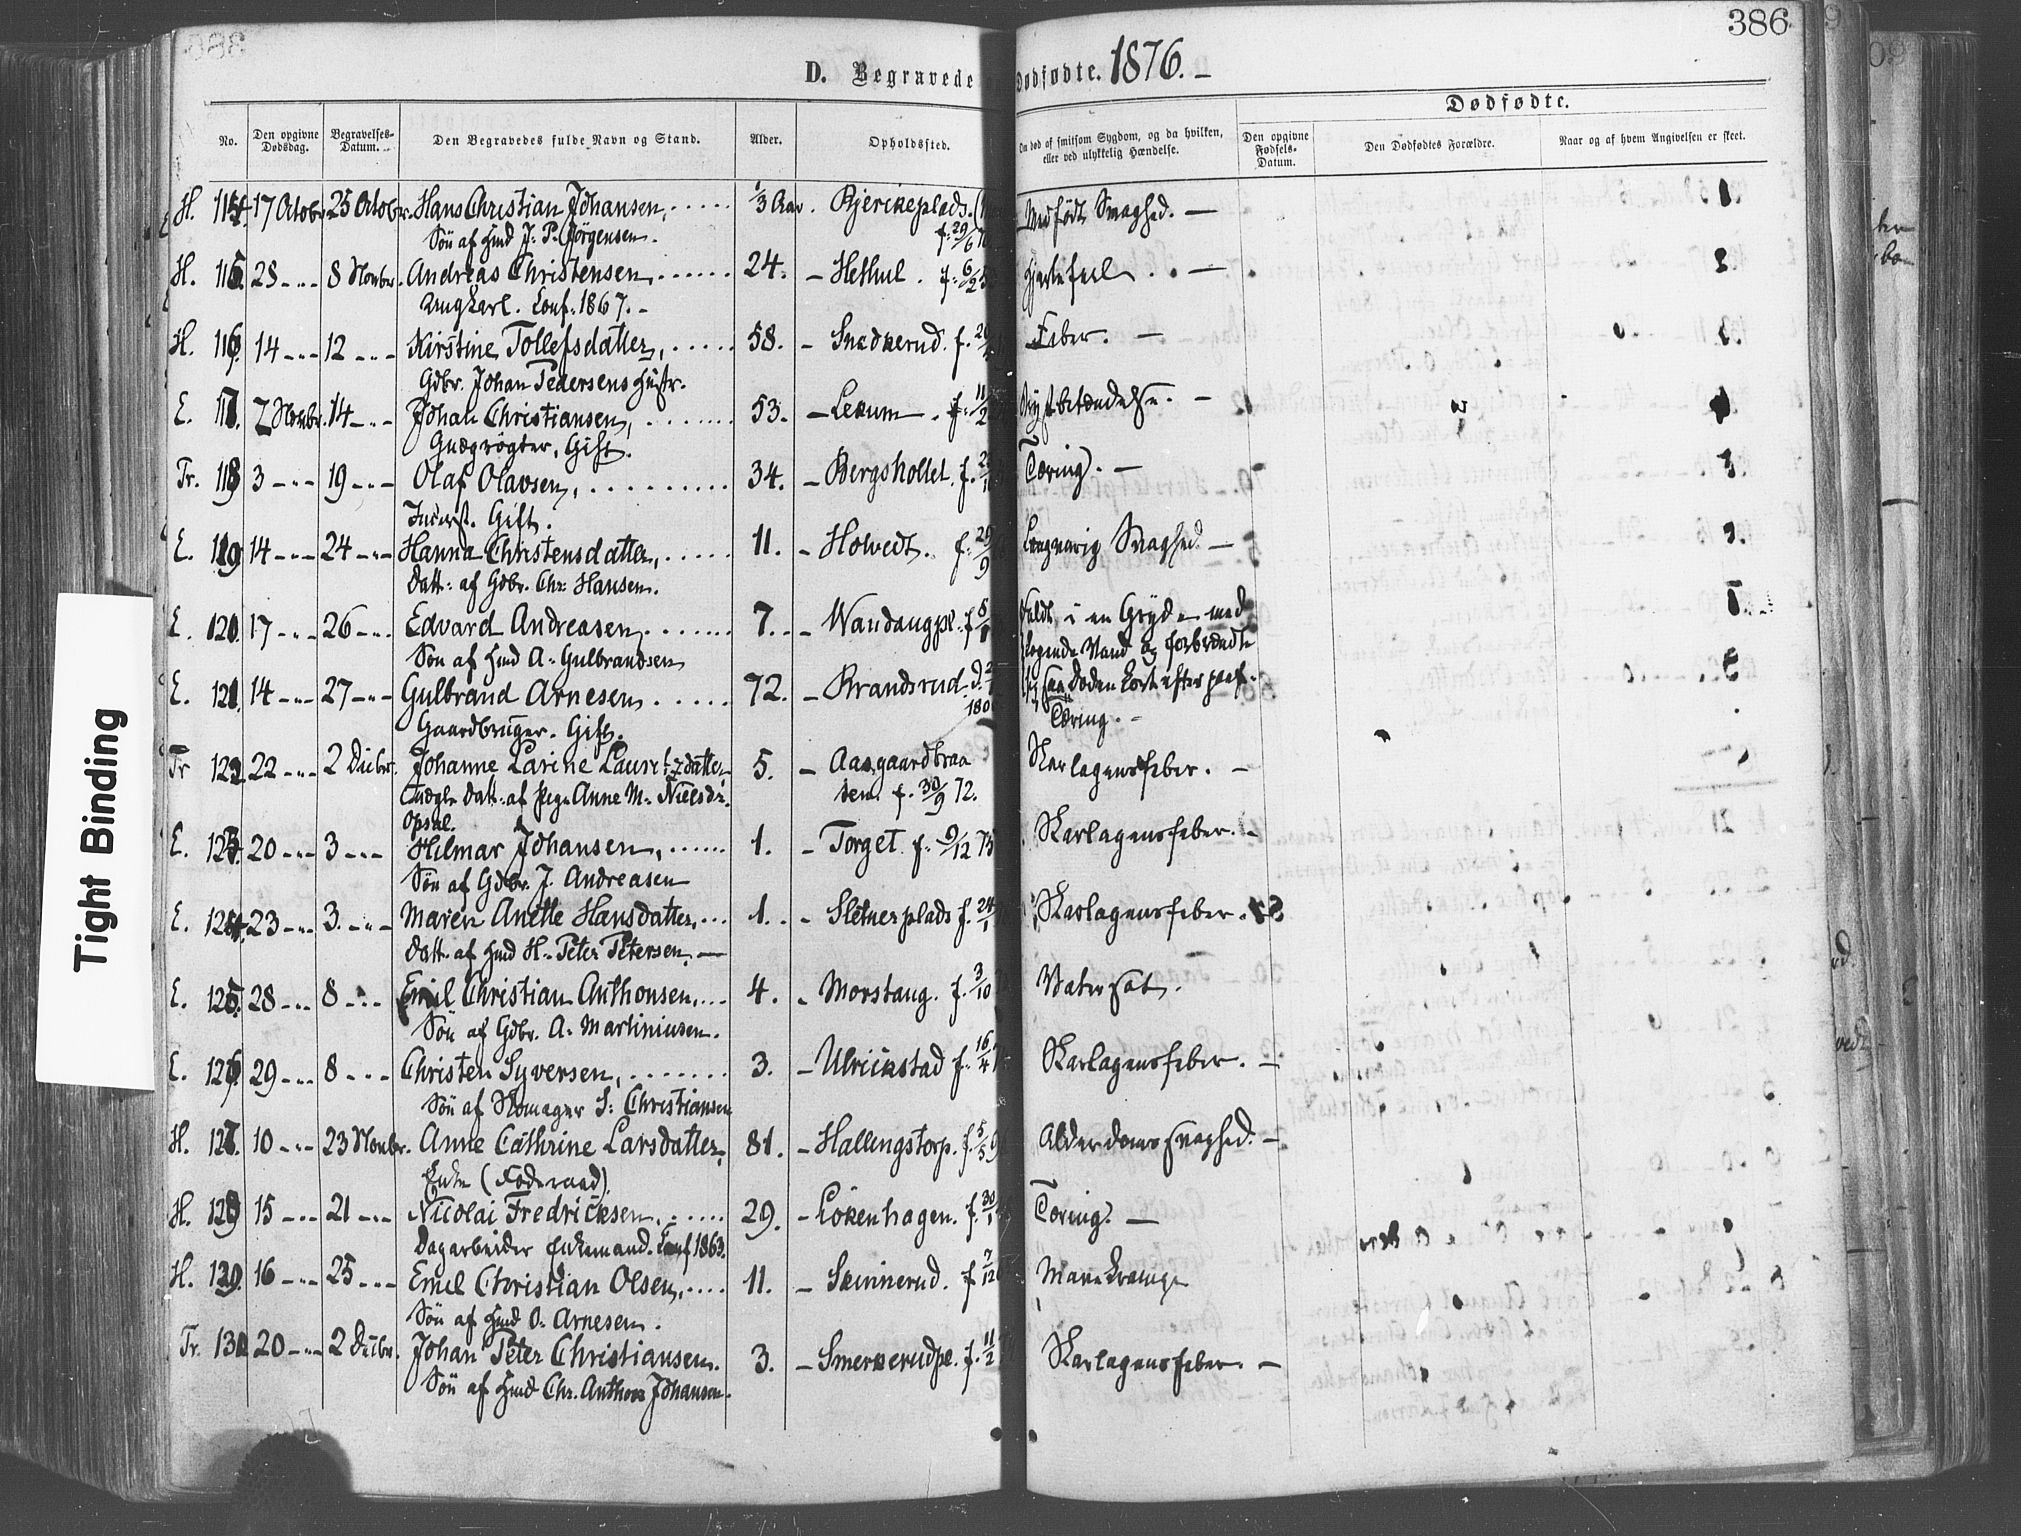 386
D. Begravede Dødfødte. 1876.
Dødfødte.
No.
Den opgivne Dødsdag.
Begravelses-Datum.
Den Begravedes fulde Navn og Stand.
Alder.
Opholdssted.
Om død af smitsom Sygdom, og da hvilken, eller ved ulykkelig Hændelse.
Den opgivne Fødsels-Datum.
Den Dødfødtes Forældre.
Naar og af hvem Angivelsen er skeet.
H. 114. 17 Octobr. 25 Octobr. Hans Christian Johansen, 1/3 Aar. Bjerkeplads. Medfødt Svaghed. —
Søn af Hmd J. P. Jörgensen. f. 29/6
H. 115. 28 -"- 8 Novbr. Andreas Christensen, 24. - Hethul. f. 6/2 Hjertefeil. —
Ungkarl. Conf. 1867. -
H. 116. 14 -"- 12 -"- Kirstine Tollefsdatter, 58. - Snekkerud. f. Feber. —
Gdbr. Johan Pedersens Hustr.
E. 117. 7 Novbr. 14 -"- Johan Christiansen, 53. - Lekum. f. 11/2 Brystbetændelse. —
Qvægrögter, Gift.
Tr. 118 3 -"- 19 -"- Olaf Olavsen, 34. - Bergshollet. f. Tæring. —
Inderst. Gift.
E. 119 14 -"- 24 -"- Hanna Christensdatter, 11. - Holvedt. f. 29/9 Langvarig Svaghed —
Datt. af Gdbr. Chr. Hansen.
E. 120. 17 -"- 26 -"- Edvard Andreasen, 7. - Wandaugpl. f. Faldt i en Gryde med
Søn af Hmd A. Gulbrandsen kogende Vand og forbrændte
E. 121. 14 -"- 27 -"- Gulbrand Arnesen, 72. - Brandsrud. saa Døden kort efter paaf.
Gaardbruger. Gift. Tæring. -
Tr 122 22 -"- 2 Decbr. Johanne Larine Lauretzdatter, 5. - Aasgaardbraa Skarlagensfeber. —
Uægte Datt. af Pige Anne M. Nielsd.
Opsal. f. 30/9 72.
E. 123. 20 -"- 3 -"- Hilmar Johansen, 1. - Torget f. 9/12 75 Skarlagensfeber. -
Søn af Gdbr. J. Andreasen
E. 124. 23 -"- 3. -"- Maren Anette Hansdatter, 1. - Sletnerplads f. 24/ Skarlagensfeber.
Datt. af Hmd H. Peter Petersen. —
E. 125. 28 -"- 8 -"- Emil Christian Anthonsen, 4. - Morstaug. f. 3/10 Vatersot.
Søn af Gdbr. A. Martiniusen.
E. 126. 29 -"- 8 -"- Christen Syversen, 3. - Ulrikstad f. 16/4 Skarlagensfeber. —
Søn af Skomager S. Christiansen
H. 127. 10 -"- 23 Novbr. Anne Cathrine Larsdatter, 81. - Hallingstorp. f. 5/5 Alderdomssvaghed. —
Enke (Føderaad).
H. 128 15 -"- 21 -"- Nicolai Fredriksen, 29. - Lökenhagen. f. 30/1 Tæring. —
Dagarbeider Enkemand. Conf 1863.
H. 129. 16 -"- 25 -"- Emil Christian Olsen, 11. - Skinnerud. f. 7/12 Mavekrampe
Søn af Hmd O. Arnesen.
Tr. 130. 20 -"- 2 Decbr. Johan Peter Christiansen. 3. - Smerkerudpl. f. 11/2 Skarlagensfeber. —
Søn af Hmd Chr. Anthon Johansen.
Tight Binding